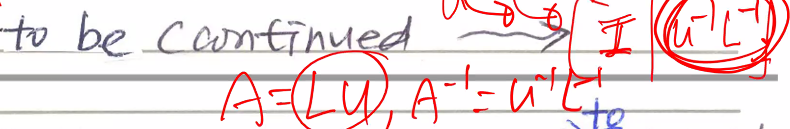 to be ccontinued → [ I | U⁻¹L⁻¹ ]
A = LU, A⁻¹ = U⁻¹L⁻¹
to